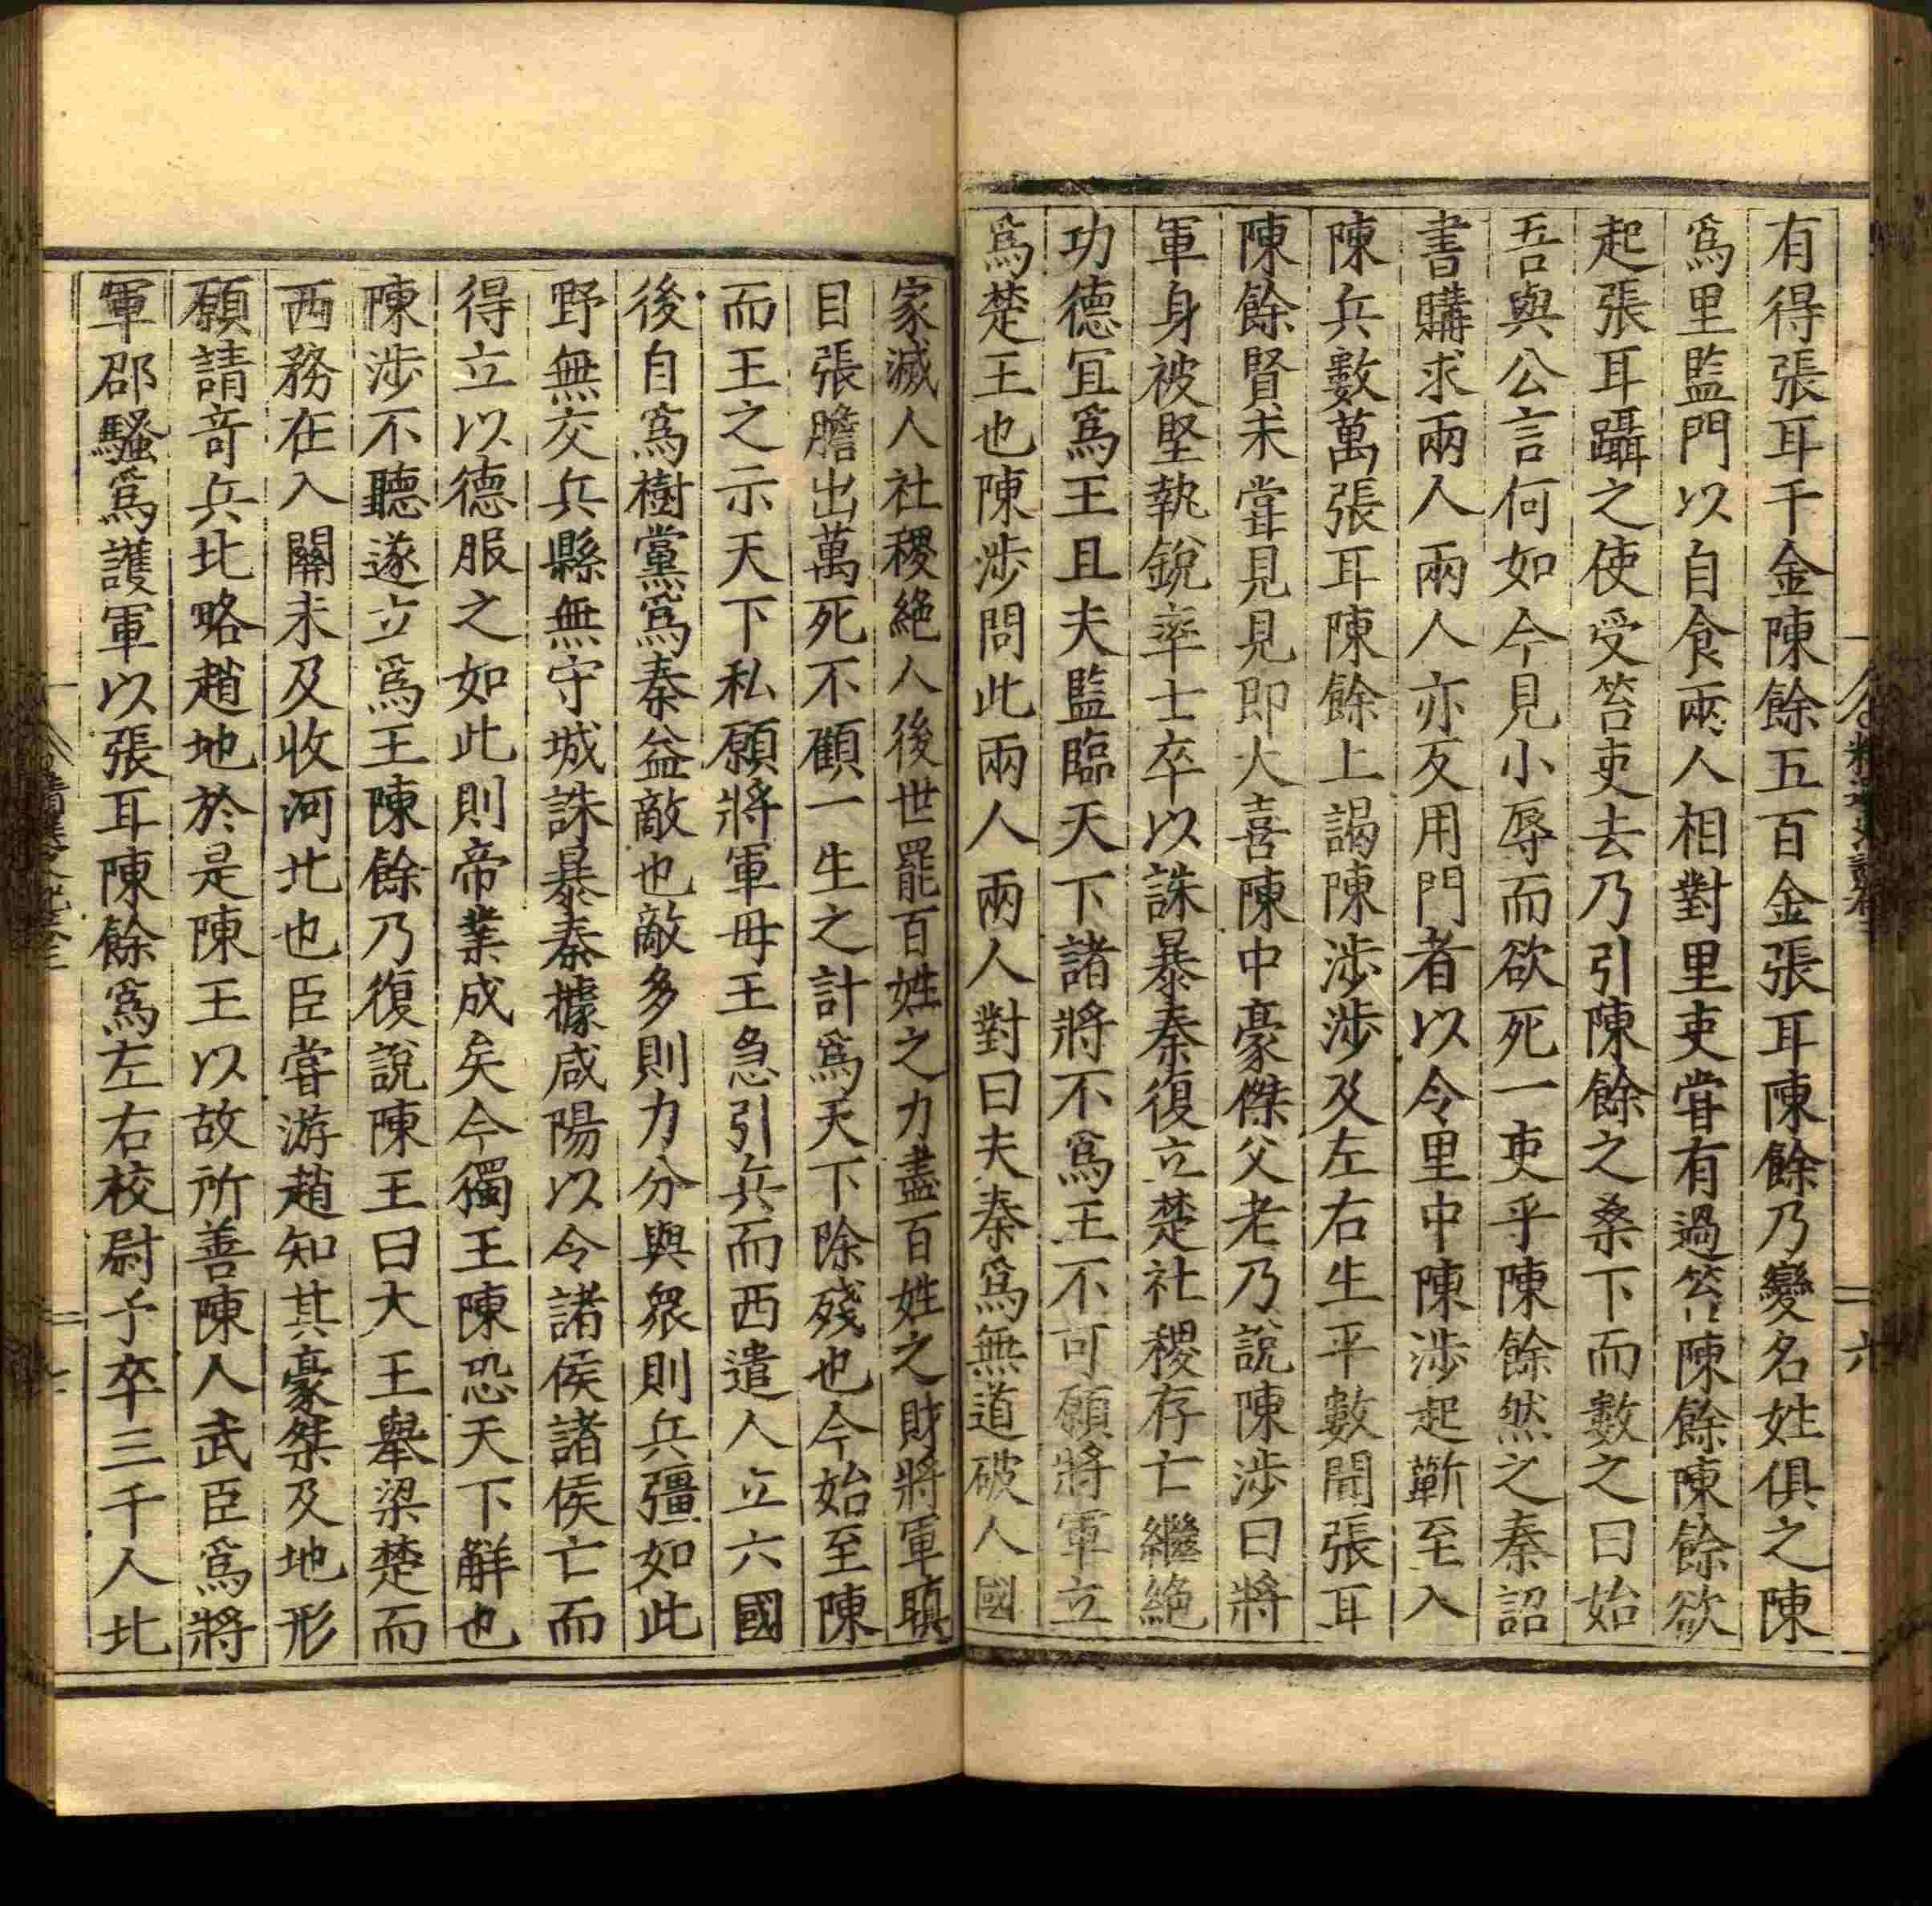 有得張耳千金陳餘五百金張耳陳餘乃變名姓俱之陳
爲里監門以自食兩人相對里吏嘗有過笞陳餘陳餘欲
起張耳躡之使受笞吏去乃引陳餘之桑下而數之曰始
吾與公言何如今見小辱而欲死一吏乎陳餘然之秦詔
書購求兩人兩人亦反用門者以令里中陳涉起蘄至入
陳兵數萬張耳陳餘上謁陳涉涉及左右生平數聞張耳
陳餘賢未嘗見見即大喜陳中豪傑父老乃說陳涉曰將
軍身被堅執銳率士卒以誅暴秦復立楚社稷存亡繼絕
功德宜爲王且夫監臨天下諸將不爲王不可願將軍立
爲楚王也陳涉問此兩人兩人對曰夫秦爲無道破人國
六
家滅人社稷絕人後世罷百姓之力盡百姓之財將軍瞋
目張膽出萬死不顧一生之計爲天下除殘也今始至陳
而王之示天下私願將軍毋王急引兵而西遣人立六國
後自爲樹黨爲秦益敵也敵多則力分與眾則兵彊如此
野無交兵縣無守城誅暴秦據咸陽以令諸侯諸侯亡而
得立以德服之如此則帝業成矣今獨王陳恐天下解也
陳涉不聽遂立爲王陳餘乃復說陳王曰大王舉梁楚而
西務在入關未及收河北也臣嘗游趙知其豪桀及地形
願請奇兵北略趙地於是陳王以故所善陳人武臣爲將
軍邵騷爲護軍以張耳陳餘爲左右校尉予卒三千人北